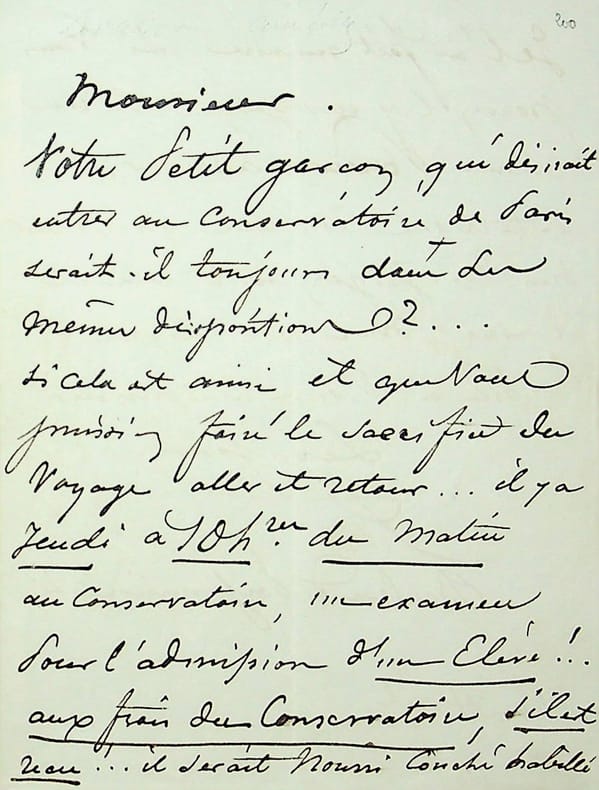 200
Monsieur.
Votre petit garçon, qui désirait
entrer au Conservatoire de Paris
serait-il toujours dans les
mêmes dispositions ?...
si cela est ainsi et que Vous
puissiez faire le sacrifice du
Voyage aller et retour... il y a
Jeudi à 10 h.res du Matin
au Conservatoire, un examen
pour l'admission d'un Elève !..
aux frais du Conservatoire, s'il est
reçu !... il serait Nourri Couché habillé